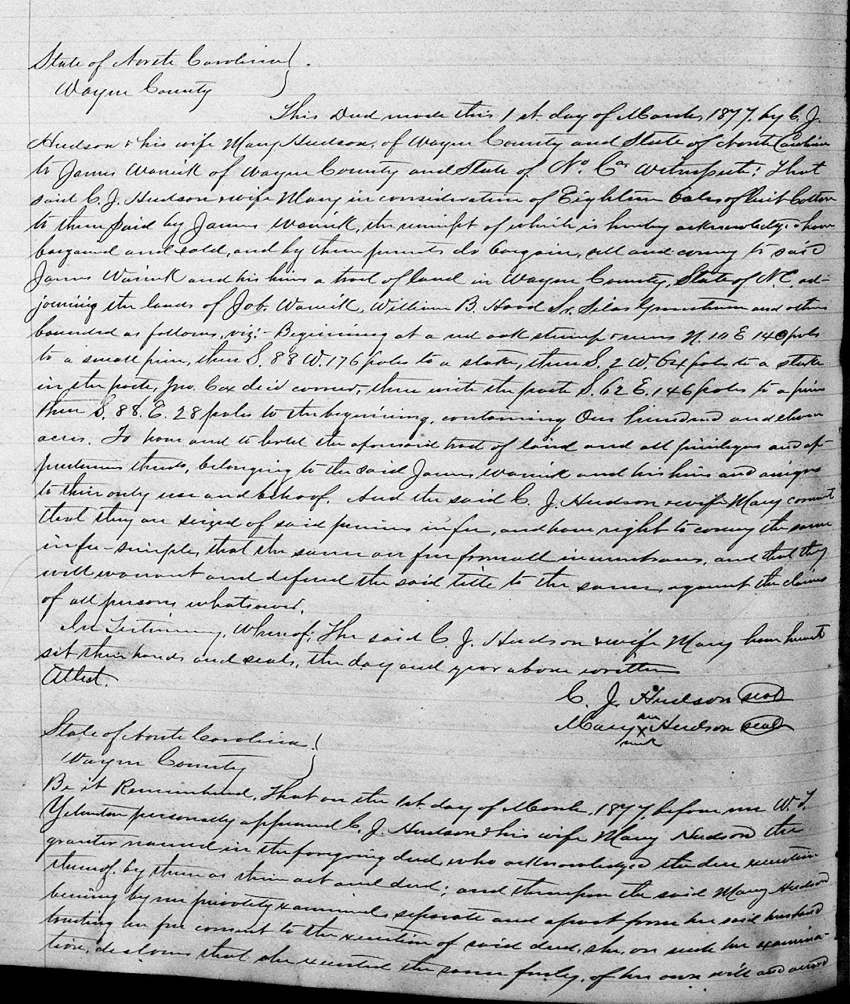 State of North Carolina }.
Wayne County
This Deed made this 1st. day of March, 1877, by C. J.
Hudson & his wife Mary Hudson, of Wayne County and State of North Carolina
to James Warrick of Wayne County and State of No. Ca. Witnesseth: That
said C. J. Hudson & wife Mary in consideration of Eighteen bales of lint Cotton
to them paid by James Warrick, the receipt of which is hereby acknowledged, have
bargained and sold, and by these presents do bargain, sell and convey to said
James Warrick and his heirs a tract of land in Wayne County, State of N.C. ad-
joining the lands of Job. Warrick, William B. Hood Sr. Silas and others
bounded as follows, viz:- Beginning at a red oak stump & runs N. 10 E 140 poles
to a small pine, then S. 88 W. 176 poles to a stake, then S. 2 W. 64 poles to a stake
in the Jno. Cox dec'd corner, then with the S. 62 E. 146 poles to a pine
then S. 88. E. 28 poles to the beginning, containing One hundred and eleven
acres. To have and to hold the aforesaid tract of land and all privileges and ap-
purtenances thereto, belonging to the said James Warrick and his heirs and assigns
to their only use and behoof. And the said C. J. Hudson & wife Mary covenant
that they are seized of said premises in fee, and have right to convey the same
in fee-simple, that the same are free from all incumbrances, and that they
will warrant and defend the said title to the same, against the claims
of all persons whatsoever.
In Testimony Whereof, The said C. J. Hudson & wife Mary have hereto
set their hands and seals, the day and year above written
Attest.
C. J. Hudson seal
Mary x Hudson seal
mark
State of North Carolina. }
Wayne County
Be it Remembered, That on the 1st day of March, 1877, before me W. T.
Yelverton personally appeared C. J. Hudson & his wife Mary Hudson the
grantor named in the foregoing deed, who acknowledged the due execution
thereof, by them as their act and deed; and thereupon the said Mary Hudson
being by me privately examined, separate and apart from her said husband
touching her free consent to the execution of said deed, she, on such her examina-
tion, declares that she executed the same freely, of her own will and accord